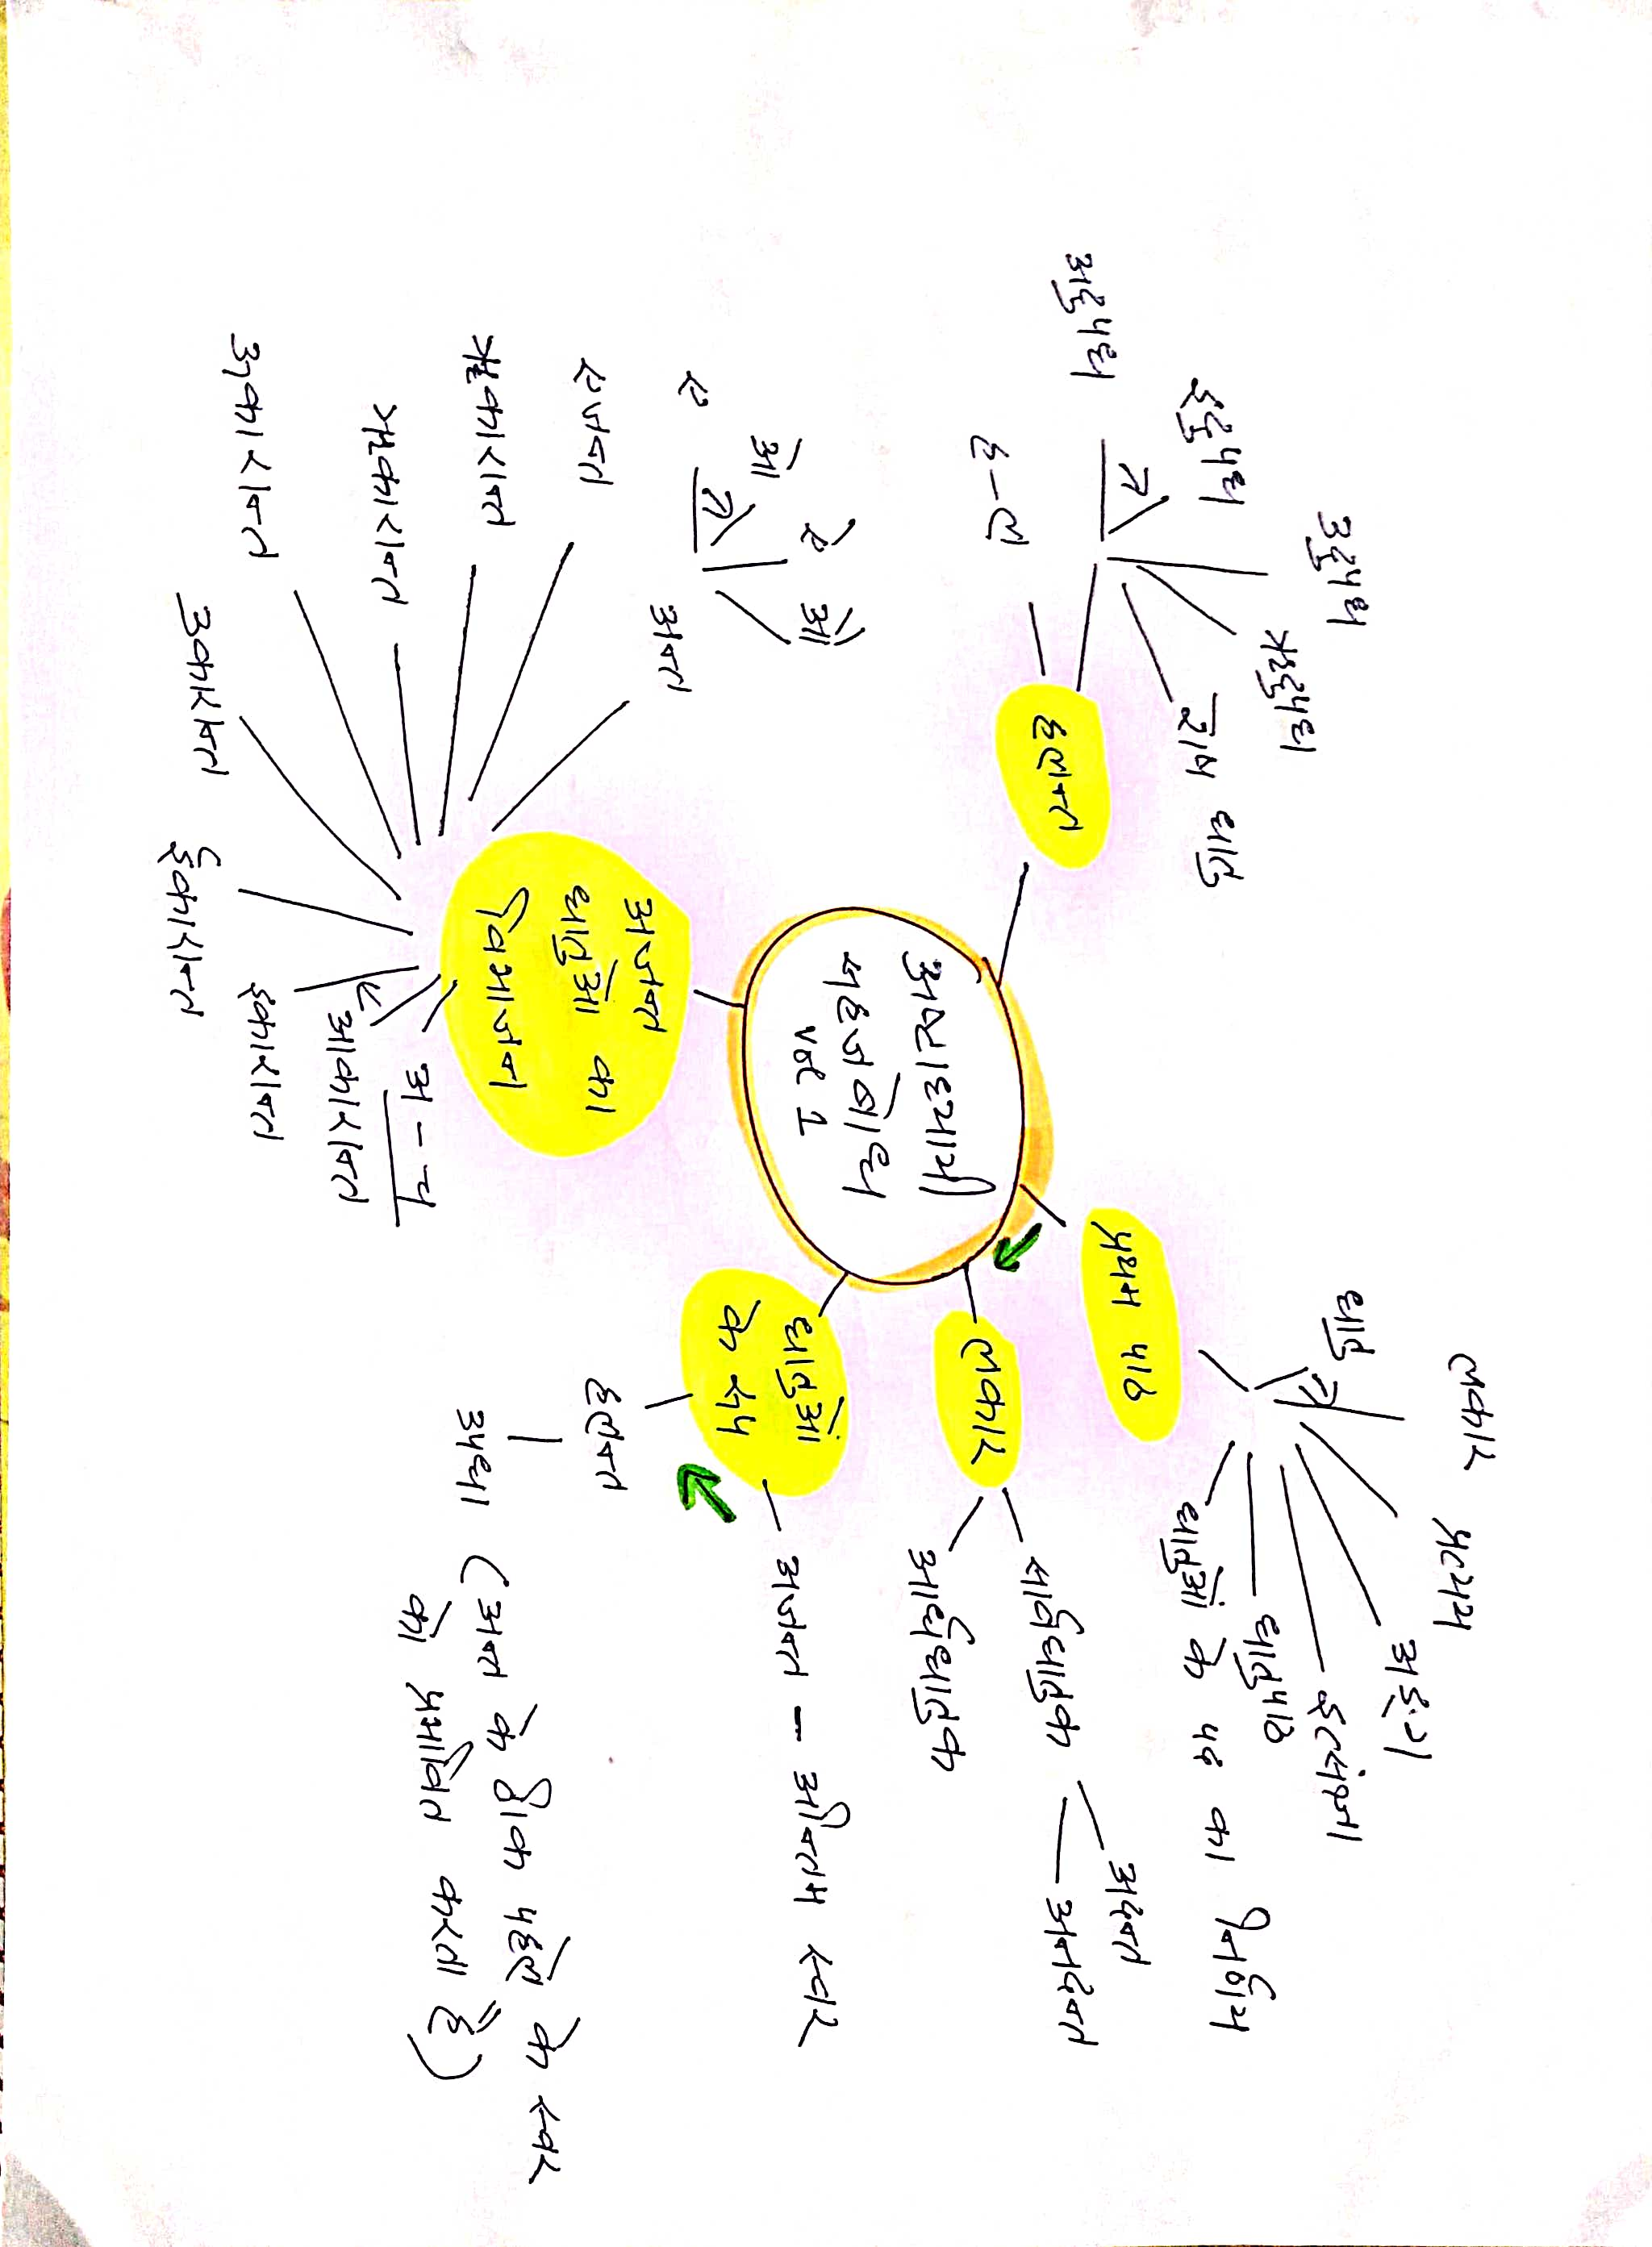 अष्टाध्यायी
सहजबोध
vol 1
प्रथम पाठ
धातु
लकार
प्रत्यय
अङ्ग
इत्संज्ञा
धातुपाठ
धातुओं के पद का निर्णय
लकार
सार्वधातुक
अदन्त
अनदन्त
आर्धधातुक
धातुओं
के रूप
अजन्त - अन्तिम स्वर
हलन्त
उपधा (अन्त के ठीक पहले के स्वर
को प्रभावित करता है)
अजन्त
धातुओं का
विभाजन
अ - च
आकारान्त
इकारान्त
ईकारान्त
उकारान्त
ऊकारान्त
ऋकारान्त
ॠकारान्त
एजन्त
अन्त
ए
ओ
ऐ
औ
हलन्त
ह - ल
अदुपध
इदुपध
उदुपध
ऋदुपध
शेष धातु